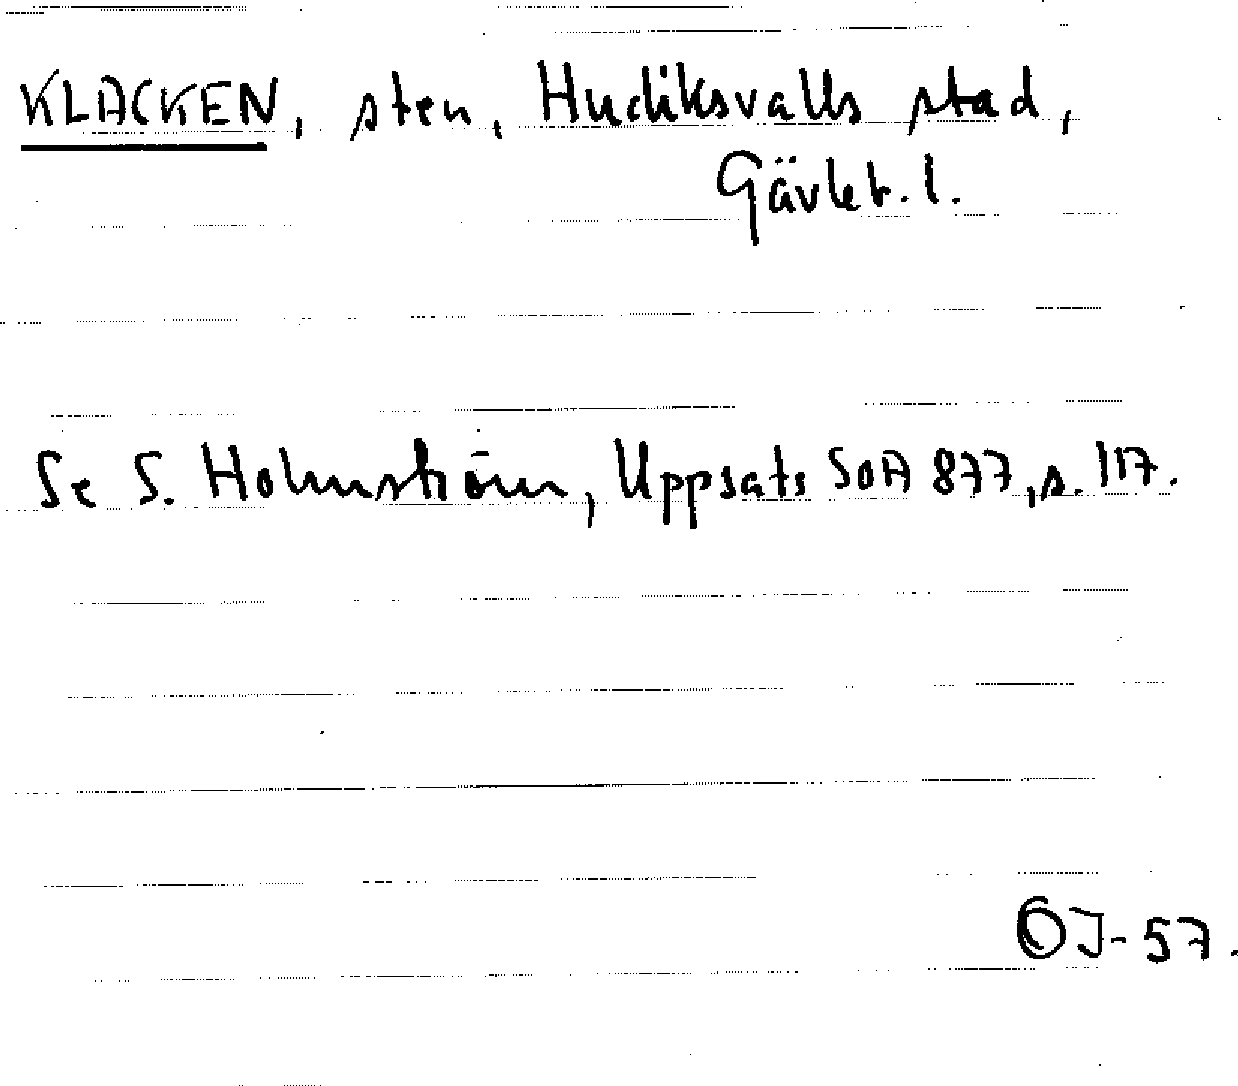 KLACKEN, sten, Hudiksvalls stad,
Gävleb. l.
Se S. Holmström, Uppsats SOA 877, s. 117.
OJ-57.